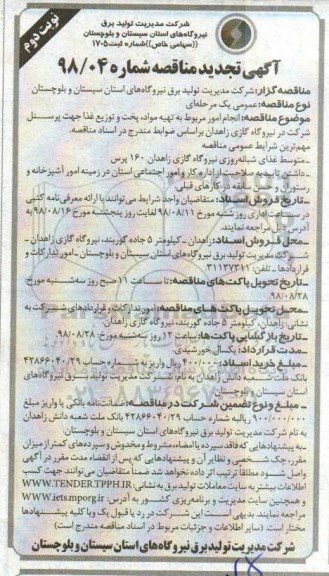 نوبت دوم
شرکت مدیریت تولید برق
نیروگاه‌های استان سیستان و بلوچستان
((سهامی خاص)) شماره ثبت ۱۷۰۵
آگهی تجدید مناقصه شماره ۹۸/۰۴
مناقصه گزار: شرکت مدیریت تولید برق نیروگاه‌های استان سیستان و بلوچستان
نوع مناقصه: عمومی یک مرحله‌ای
موضوع مناقصه: انجام امور مربوط به تهیه مواد، پخت و توزیع غذا جهت پرسنل
شرکت در نیروگاه گازی زاهدان براساس ضوابط مندرج در اسناد مناقصه.
مهم‌ترین شرایط عمومی مناقصه
ـ متوسط غذای شبانه‌روزی نیروگاه گازی زاهدان ۱۶۰ پرس
ـ داشتن تایید صلاحیت از اداره کار و امور اجتماعی استان در زمینه امور آشپزخانه و
رستوران و حسن سابقه در کارهای قبلی.
ـ تاریخ فروش اسناد: متقاضیان واجد شرایط می‌توانند با ارائه معرفی‌نامه کتبی
در ساعات اداری روز شنبه مورخ ۹۸/۰۸/۱۱ لغایت روز پنجشنبه مورخ ۹۸/۰۸/۱۶ به
آدرس ذیل مراجعه نمایند.
ـ محل فروش اسناد: زاهدان ـ کیلومتر ۵ جاده گوربند، نیروگاه گازی زاهدان ـ
شرکت مدیریت تولید برق نیروگاه‌های استان سیستان و بلوچستان ـ امور تدارکات و
قراردادها ـ تلفن: ۳۱۱۳۷۳۱۱.
ـ تاریخ تحویل پاکت‌های مناقصه: تا ساعت ۱۱ صبح روز سه‌شنبه مورخ
۹۸/۰۸/۲۸
ـ محل تحویل پاکت‌های مناقصه: امور تدارکات و قراردادهای شرکت به
نشانی: زاهدان، کیلومتر ۵ جاده گوربند، نیروگاه گازی زاهدان.
ـ تاریخ بازگشایی پاکت‌ها: ساعت ۱۲ روز سه‌شنبه مورخ ۹۸/۰۸/۲۸.
ـ مدت قرارداد: یکسال خورشیدی.
ـ مبلغ خرید اسناد: ۴۰۰/۰۰۰ ریال واریز به شماره حساب ۴۲۸۶۶۰۴۰/۲۹
بانک ملت شعبه دانش زاهدان به نام شرکت مدیریت تولید برق نیروگاه‌های
استان سیستان و بلوچستان.
ـ مبلغ و نوع تضمین شرکت در مناقصه: ضمانت‌نامه بانکی یا واریز مبلغ
ریال به شماره حساب ۴۲۸۶۶۰۴۰/۲۹ بانک ملت شعبه دانش زاهدان
به نام شرکت مدیریت تولید برق نیروگاه‌های استان سیستان و بلوچستان.
ـ به پیشنهادهایی که فاقد سپرده یا امضاء، مشروط و مخدوش و سپرده‌های کمتر از میزان
مقرر، چک شخصی و نظایر آن و پیشنهادهایی که پس از انقضاء مدت مقرر در آگهی
واصل شود مطلقا ترتیب اثر داده نخواهد شد ضمنا متقاضیان می‌توانند جهت کسب
اطلاعات بیشتر به سایت معاملات تولید برق به نشانی: WWW.TENDER.TPPH.IR
و همچنین سایت مدیریت و برنامه‌ریزی کشور به آدرس: WWW.iets.mporg.ir
مراجعه نمایند. بدیهی است این شرکت در رد یا قبول یک و یا کلیه پیشنهادها
مختار است. (سایر اطلاعات و جزئیات مربوط در اسناد مناقصه مندرج است)
شرکت مدیریت تولید برق نیروگاه‌های استان سیستان و بلوچستان